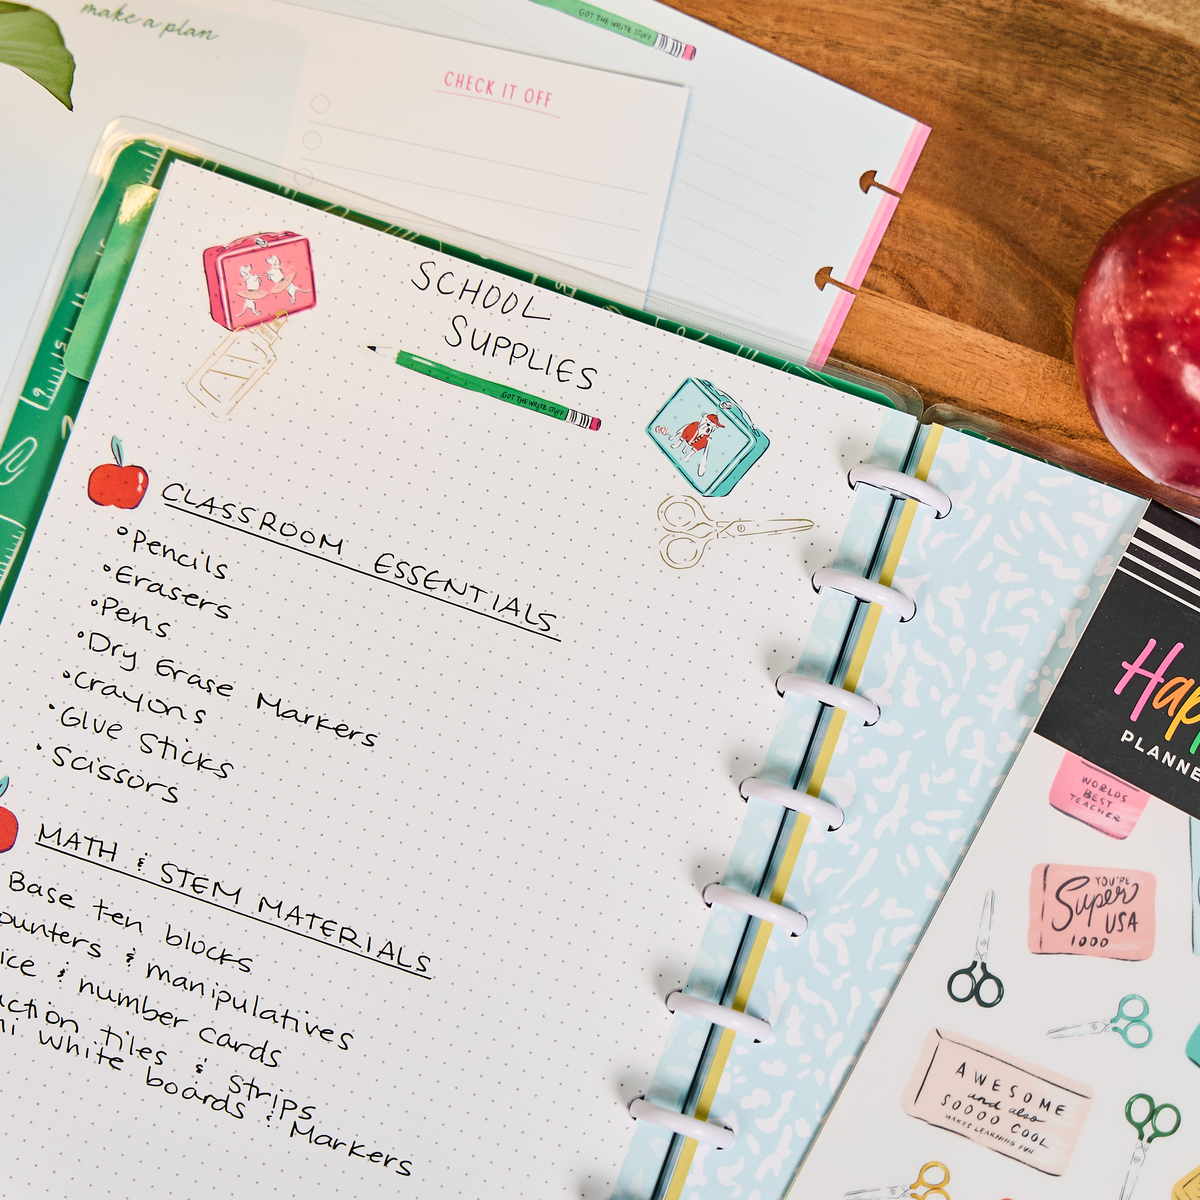 make a plan
GOT THE WRITE STUFF
CHECK IT OFF
SCHOOL
SUPPLIES
GOT THE WRITE STUFF
CLASSROOM ESSENTIALS
•Pencils
•Erasers
•Pens
•Dry Erase Markers
•Crayons
•Glue Sticks
•Scissors
MATH & STEM MATERIALS
Base ten blocks
& manipulatives
& number cards
tiles & strips
white boards & Markers
PLANNE
WORLDS
BEST
TEACHER
YOU'RE
Super
USA
1000
AWESOME
and also
SOOOO COOL
MAKES LEARNING FUN